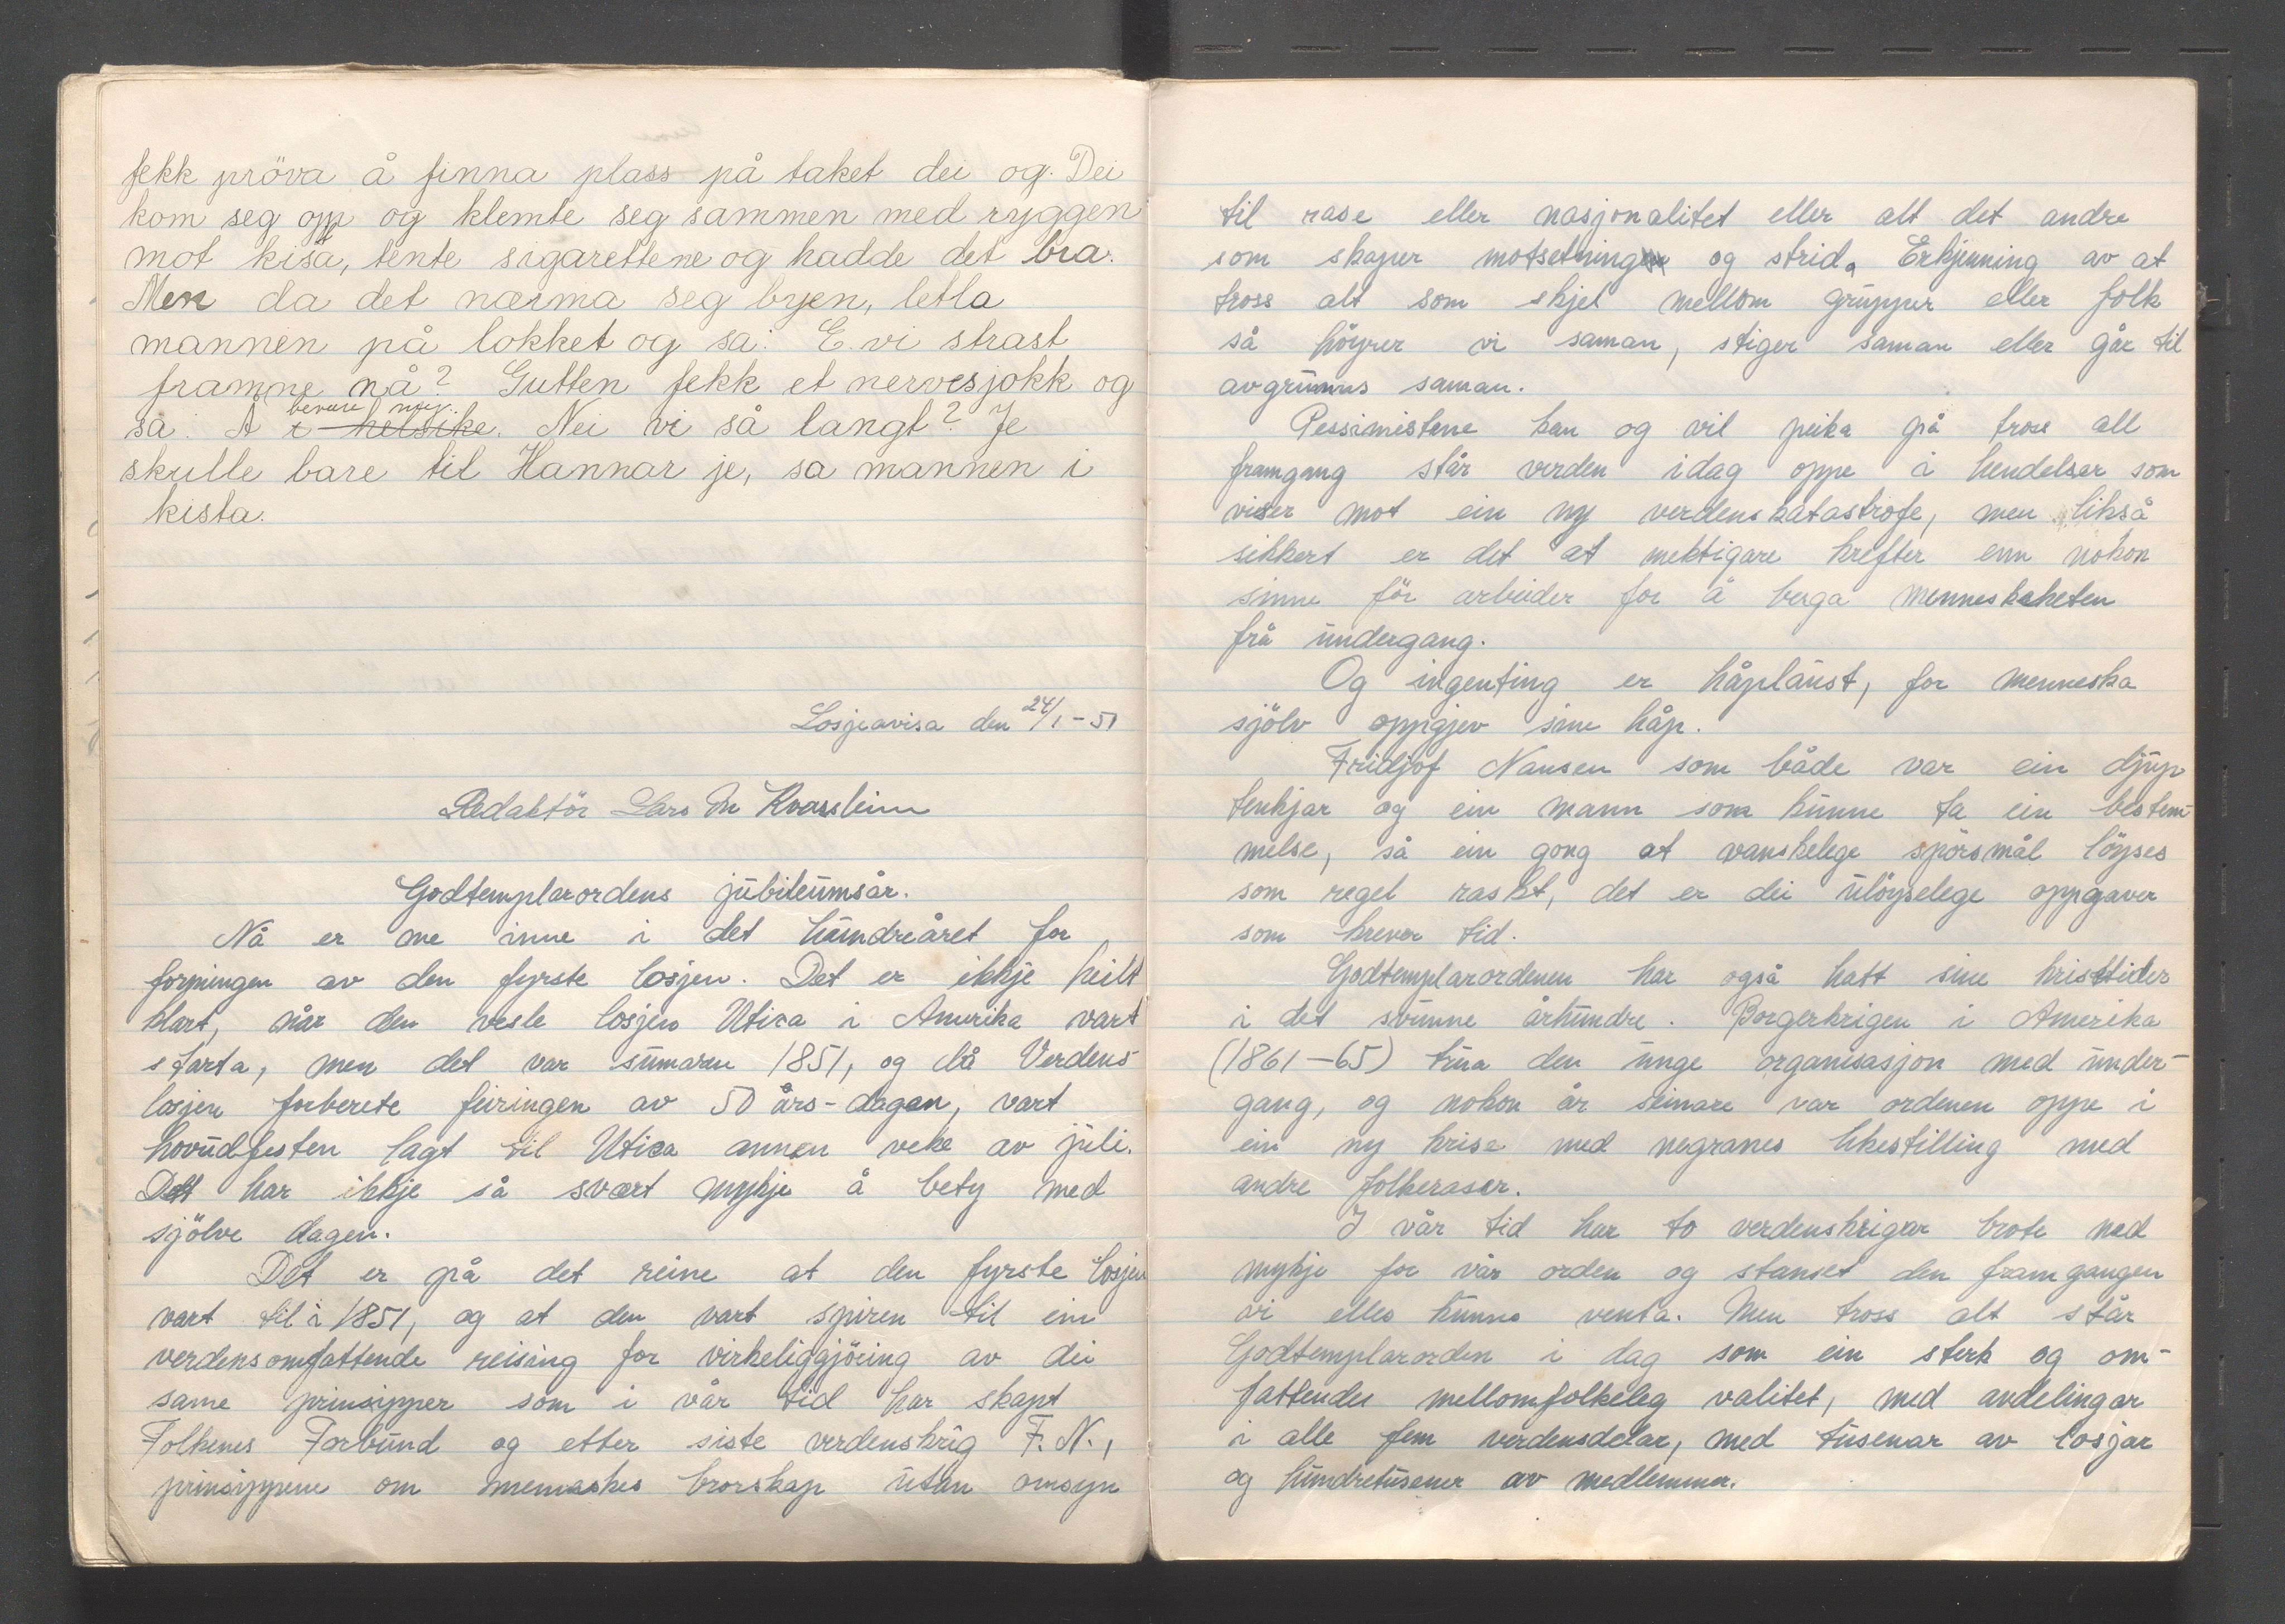 fekk pröva å finna plass på taket dei og. Dei
kom seg opp og klemte seg sammen med ryggen
mot kista, tente sigarettene og hadde det bra.
Men da det nærma seg byen, letla
mannen på lokket og sa: E vi strast
framme nå? Gutten fekk et nervesjokk og
bevare meg.
sa: Å i helsike. Nei vi så langt? Je
skulle bare til Hannar je, sa mannen i
kista.
Losjeavisa den 24/1-51
Redaktör Lars M
Godtemplarordens jubileumsår.
Nå er me inne i det hundreåret for
skipingen av den fyrste losjen. Det er ikkje heilt
klart, når den vesle losjen Utica i Amerika vart
starta, men det var sumaren 1851, og då Verdens-
losjen forberete feiringen av 50 års-dagen, vart
hovudfesten lagt til Utica annen veke av juli.
Dett har ikkje så svært mykje å bety med
sjölve dagen.
Det er på det reine at den fyrste losjen
vart til i 1851, og at den vart spiren til ein
verdensomfattende reising for virkeliggjöring av dei
same prinsipper som i vår tid har skapt
Folkenes Forbund og etter siste verdenskrig F.N.,
prinsippene om menneskes brorskap utan omsyn
til rase eller nasjonalitet eller alt det andre
som skaper motsetningen og strid. Erkjenning av at
tross alt som skjel mellom grupper eller folk
så höyrer vi saman, stiger saman eller går til
avgrunns saman.
Pessimistene kan og vil peika på tross all
framgang står verden idag oppe i hendelser som
viser mot ein ny verdenskatastrofe, men likså
sikkert er det at mektigare krefter enn nokon
sinne för arbeider for å berga menneskeheten
frå undergang.
Og ingenting er håplaust, for menneska
sjölv oppgjev sine håp.
Fridjof Nansen som både var ein djup
tenkjar og ein mann som kunne ta ein bestem-
melse, så ein gong at vanskelege spörsmål löyses
som regel raskt, det er dei ulöyselege oppgaver
som krever tid.
Godtemplarordenen har også hatt sine kristtider
i det svunne århundre. Borgerkrigen i Amerika
(1861-65) trua den unge organisasjon med under-
gang, og nokon år seinare var ordenen oppe i
ein ny krise med negranes likestilling med
andre folkeraser.
I vår tid har to verdenskrigar brote ned
mykje for vår orden og stanset den framgangen
vi elles kunne venta. Men tross alt står
Godtemplarorden i dag som ein sterk og om-
fattendes mellomfolkeleg valitet, med avdelingar
i alle fem verdensdelar, med tusenar av losjar
og hundretusener av medlemmer.